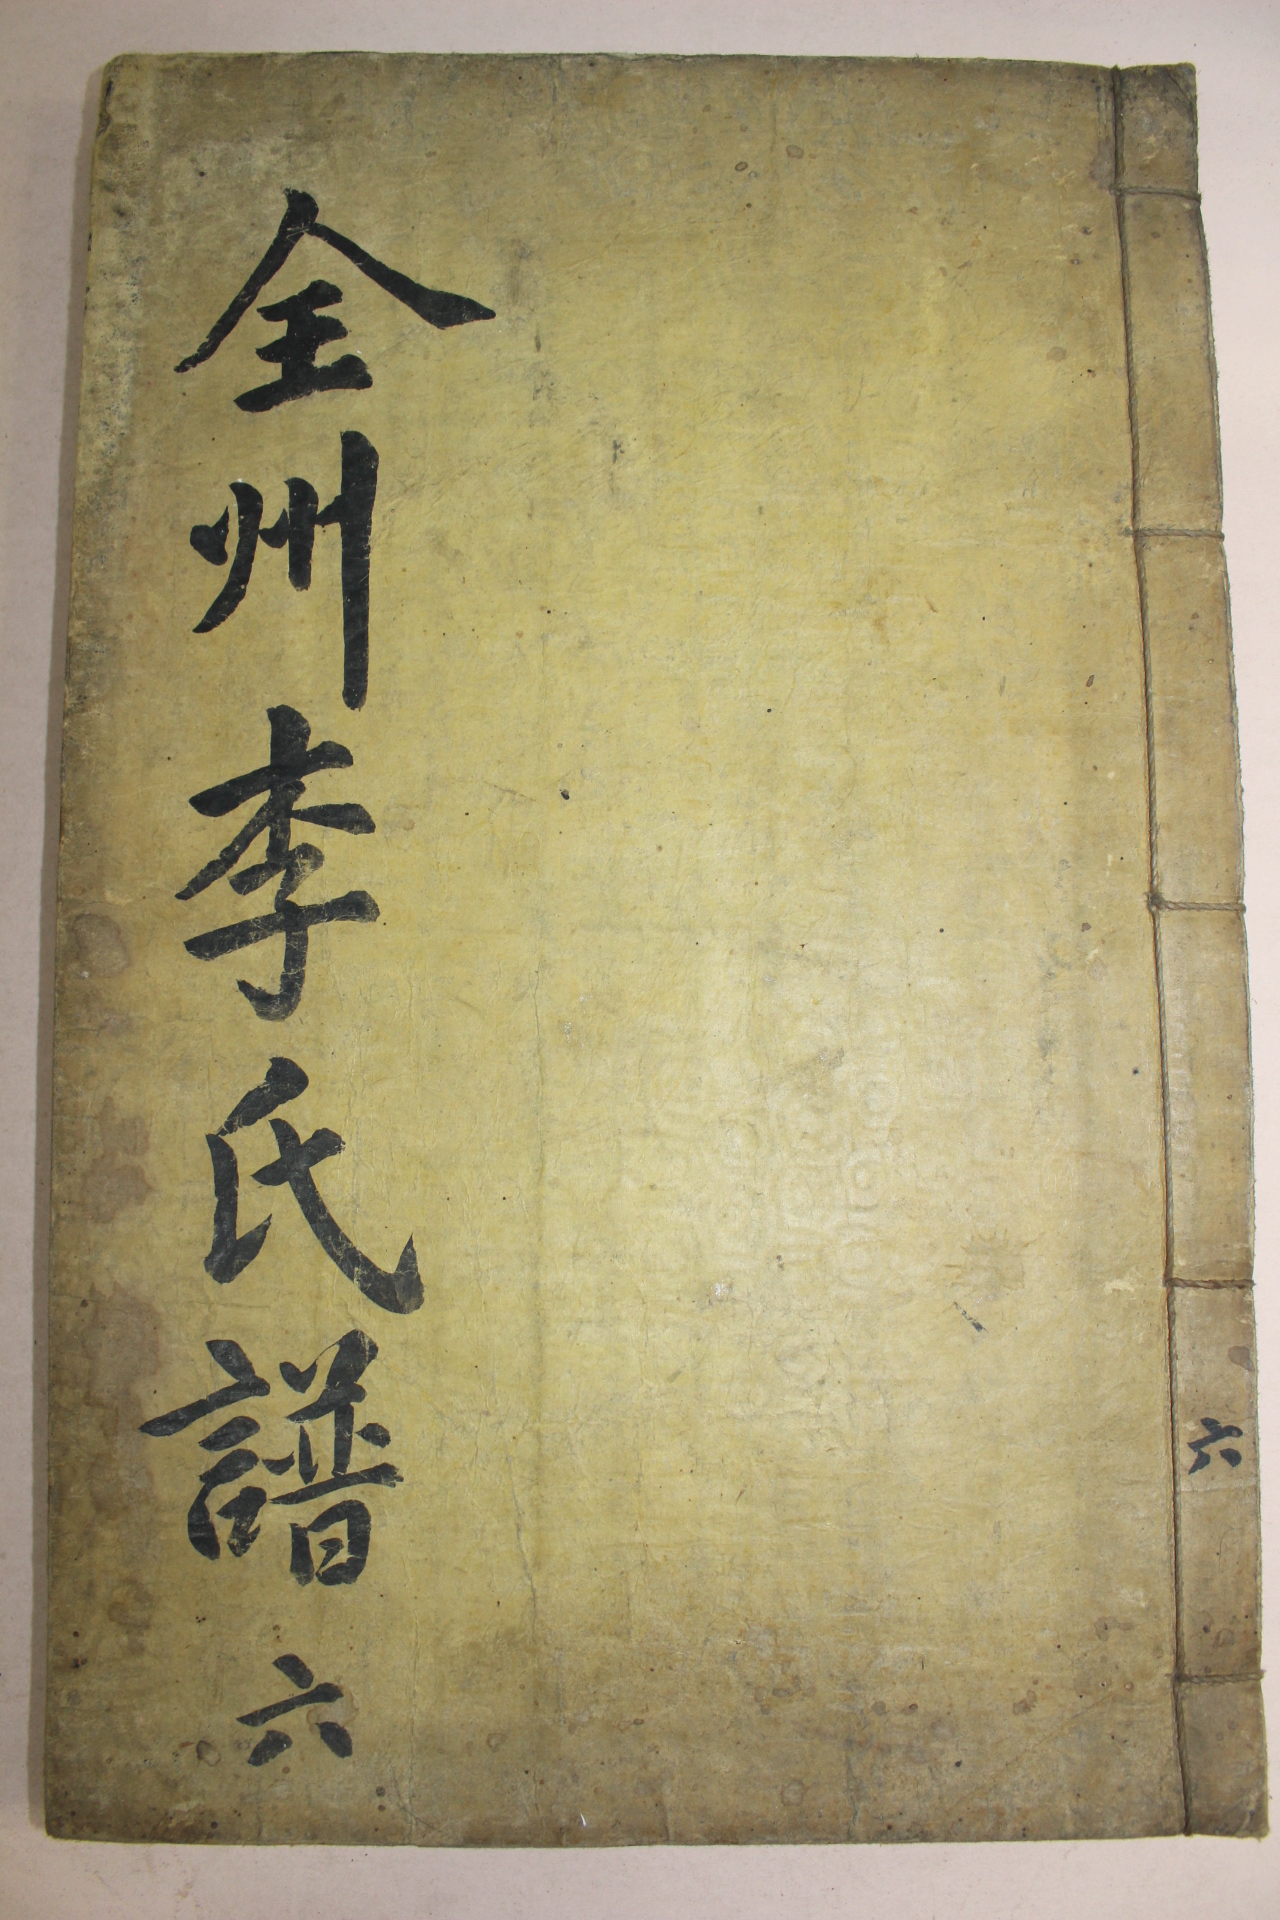 六
全州李氏譜 六